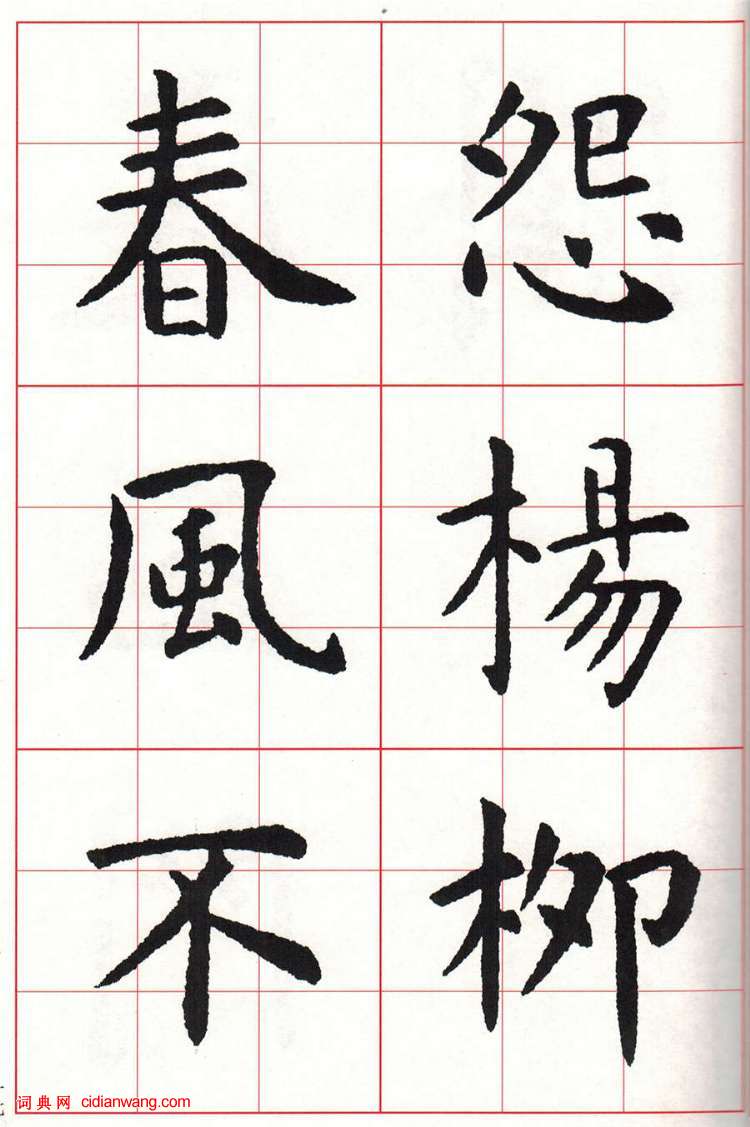 怨楊柳
春風不
词典网 cidianwang.com